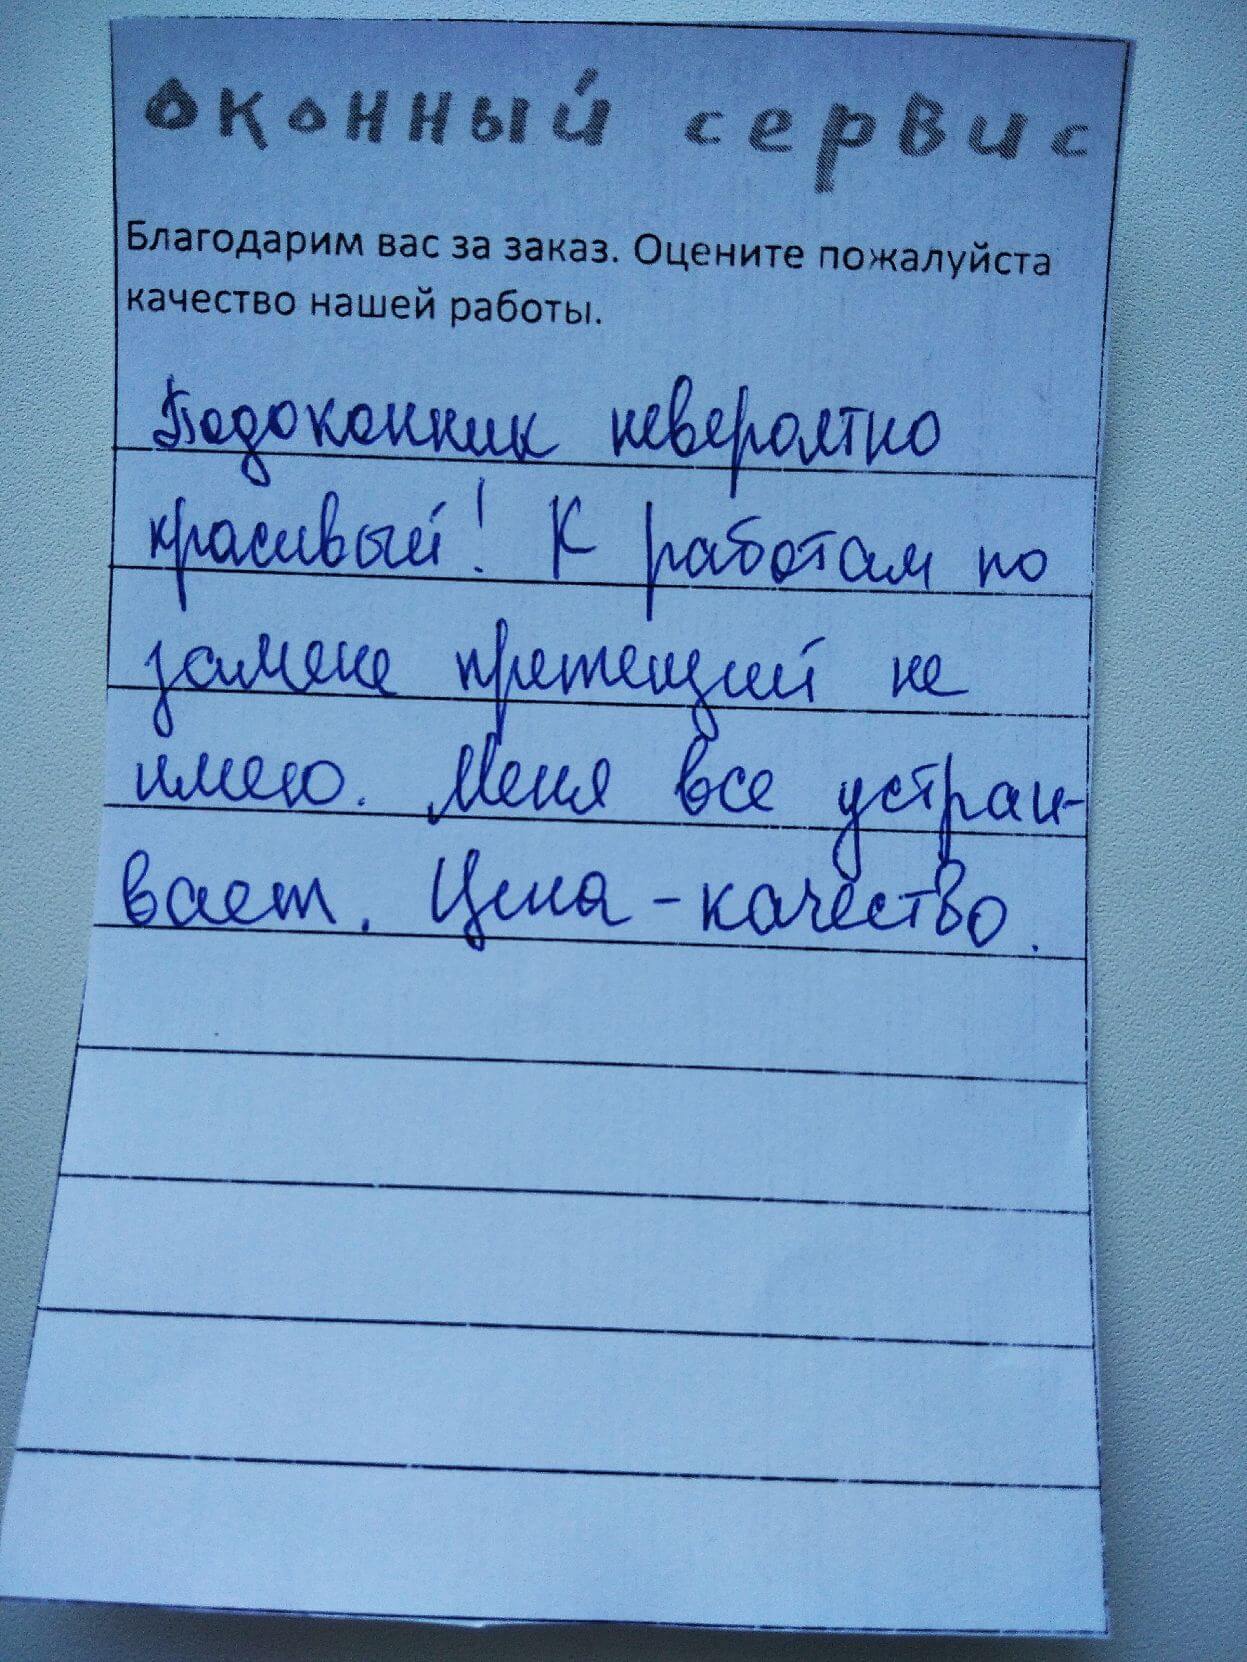 оконный сервис
Благодарим вас за заказ. Оцените пожалуйста
качество нашей работы.
Подоконник невероятно
красивый! К работам по
замене претензий не
имею. Меня все устраи-
вает. Цена - качество.